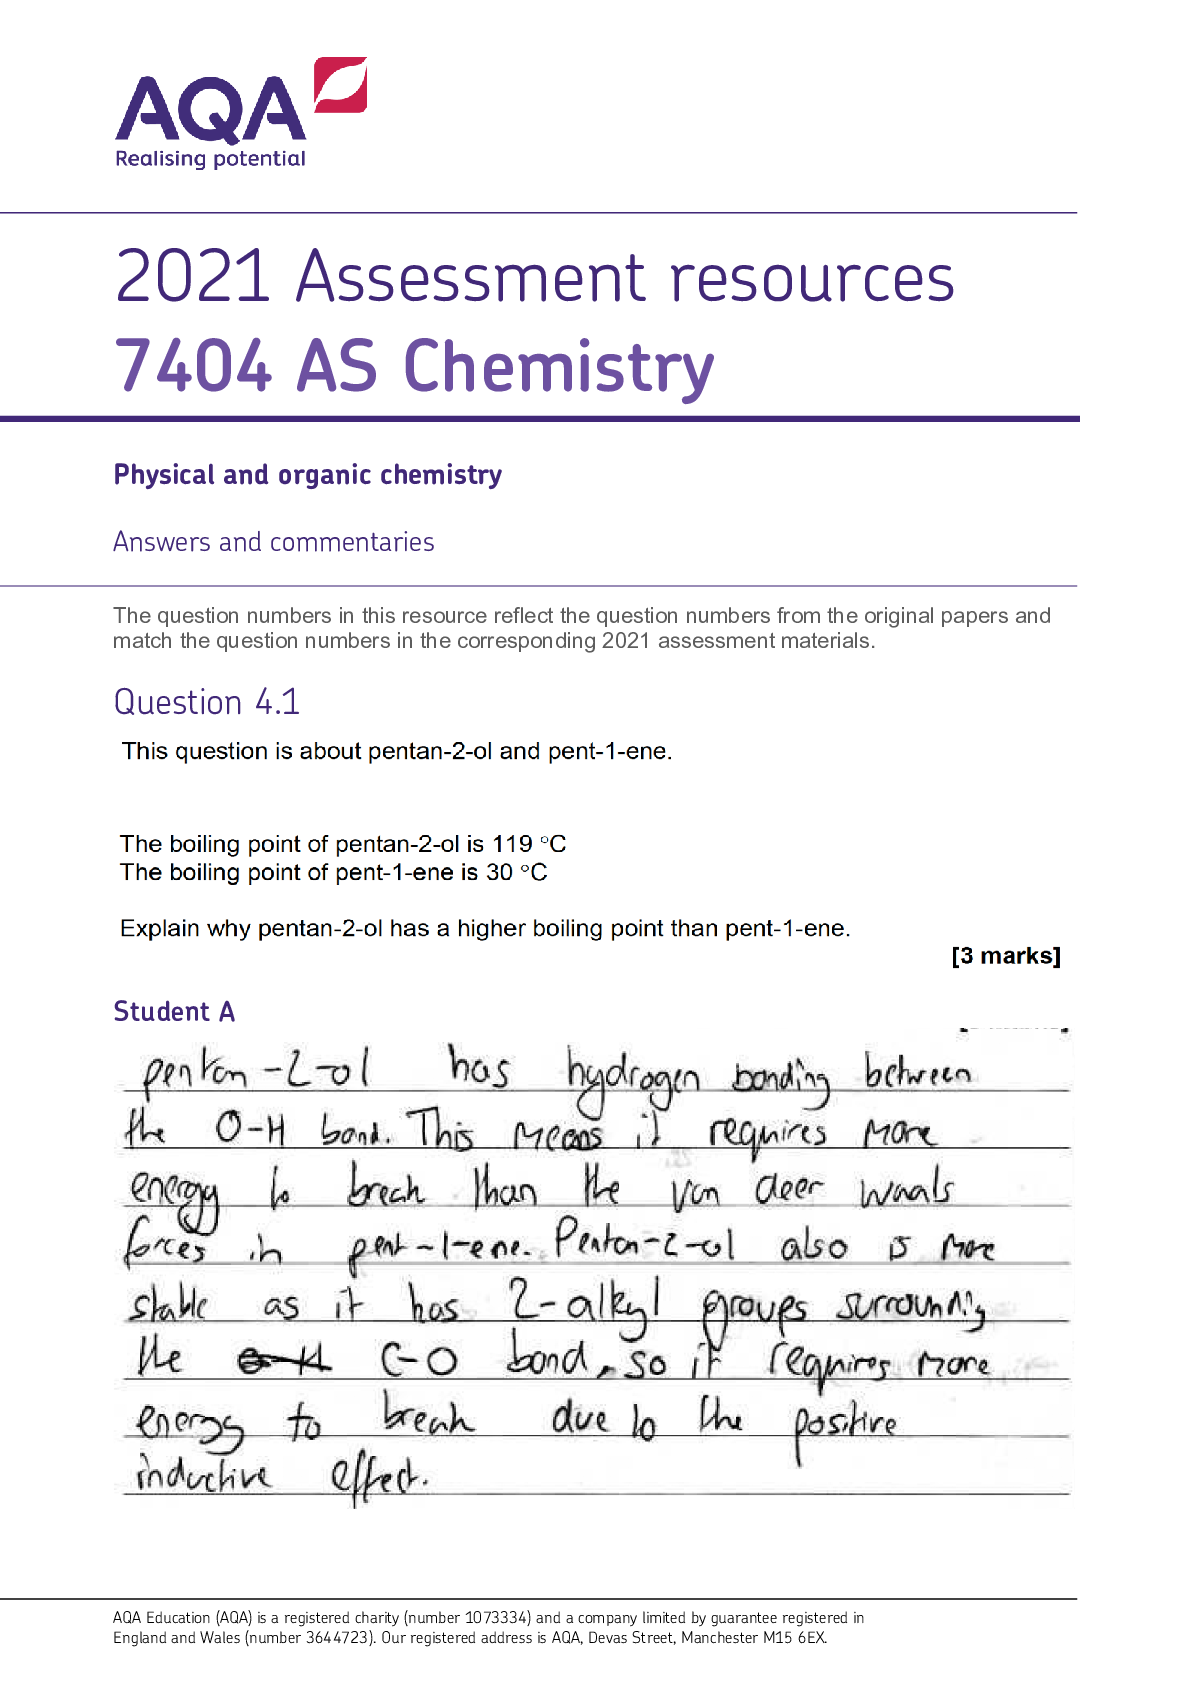 AQA
Realising potential
2021 Assessment resources
7404 AS Chemistry
Physical and organic chemistry
Answers and commentaries
The question numbers in this resource reflect the question numbers from the original papers and
match the question numbers in the corresponding 2021 assessment materials.
Question 4.1
This question is about pentan-2-ol and pent-1-ene.
The boiling point of pentan-2-ol is 119 °C
The boiling point of pent-1-ene is 30 °C
Explain why pentan-2-ol has a higher boiling point than pent-1-ene.
[3 marks]
Student A
pentan-2-ol has hydrogen bonding between
the O-H bond. This means it requires more
energy to break than the van deer waals
forces in pent-1-ene. Pentan-2-ol also is more
stable as it has 2-alkyl groups surrounding
the C-O bond, so it requires more
energy to break due to the positive
inductive effect.
AQA Education (AQA) is a registered charity (number 1073334) and a company limited by guarantee registered in
England and Wales (number 3644723). Our registered address is AQA, Devas Street, Manchester M15 6EX.